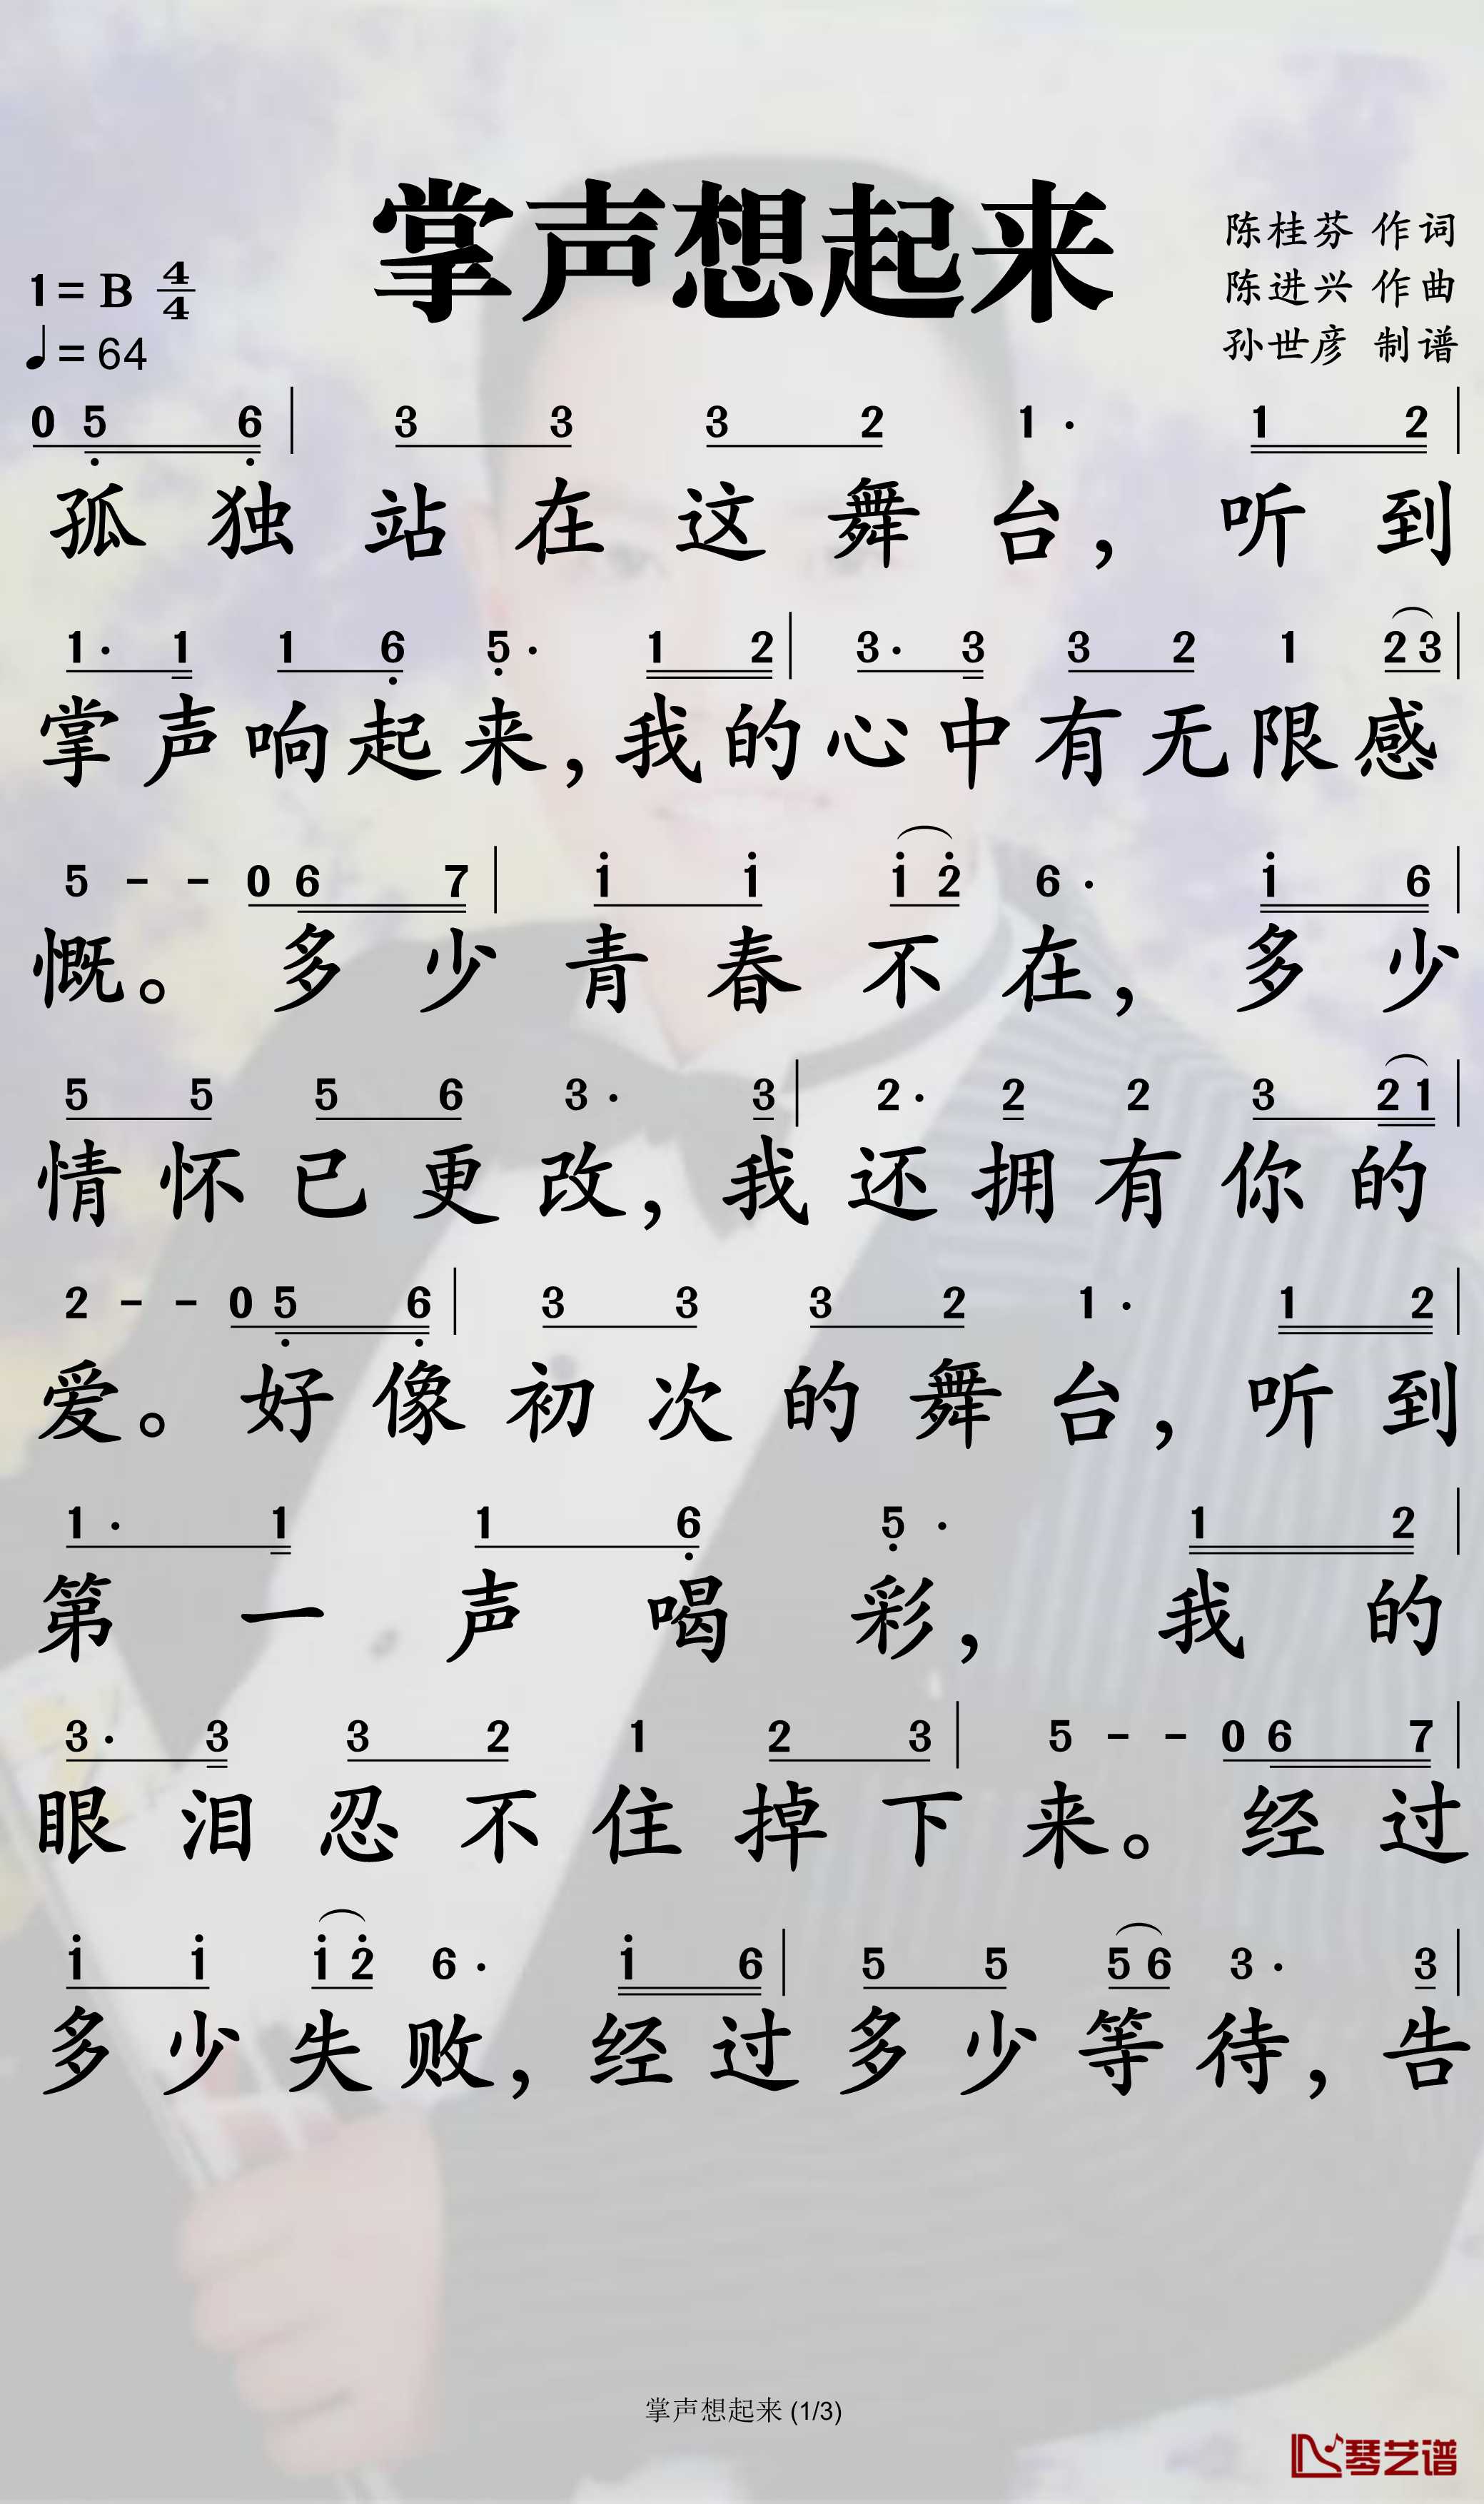 掌声想起来
陈桂芬 作词
陈进兴 作曲
孙世彦 制谱
1= B 4/4
♩= 64
0 5 6 | 3 3 3 2 1 · 1 2 |
孤独站在这舞台，听到
1 · 1 1 6 5 · 1 2 | 3 · 3 3 2 1 2 3 |
掌声响起来，我的心中有无限感
5 - - 0 6 7 | 1 1 1 2 6 · 1 6 |
慨。多少青春不在，多少
5 5 5 6 3 · 3 | 2 · 2 2 3 2 1 |
情怀已更改，我还拥有你的
2 - - 0 5 6 | 3 3 3 2 1 · 1 2 |
爱。好像初次的舞台，听到
1 · 1 1 6 5 · 1 2 |
第一声喝彩，我的
3 · 3 3 2 1 2 3 | 5 - - 0 6 7 |
眼泪忍不住掉下来。经过
1 1 1 2 6 · 1 6 | 5 5 5 6 3 · 3 |
多少失败，经过多少等待，告
掌声想起来 (1/3)
琴艺谱